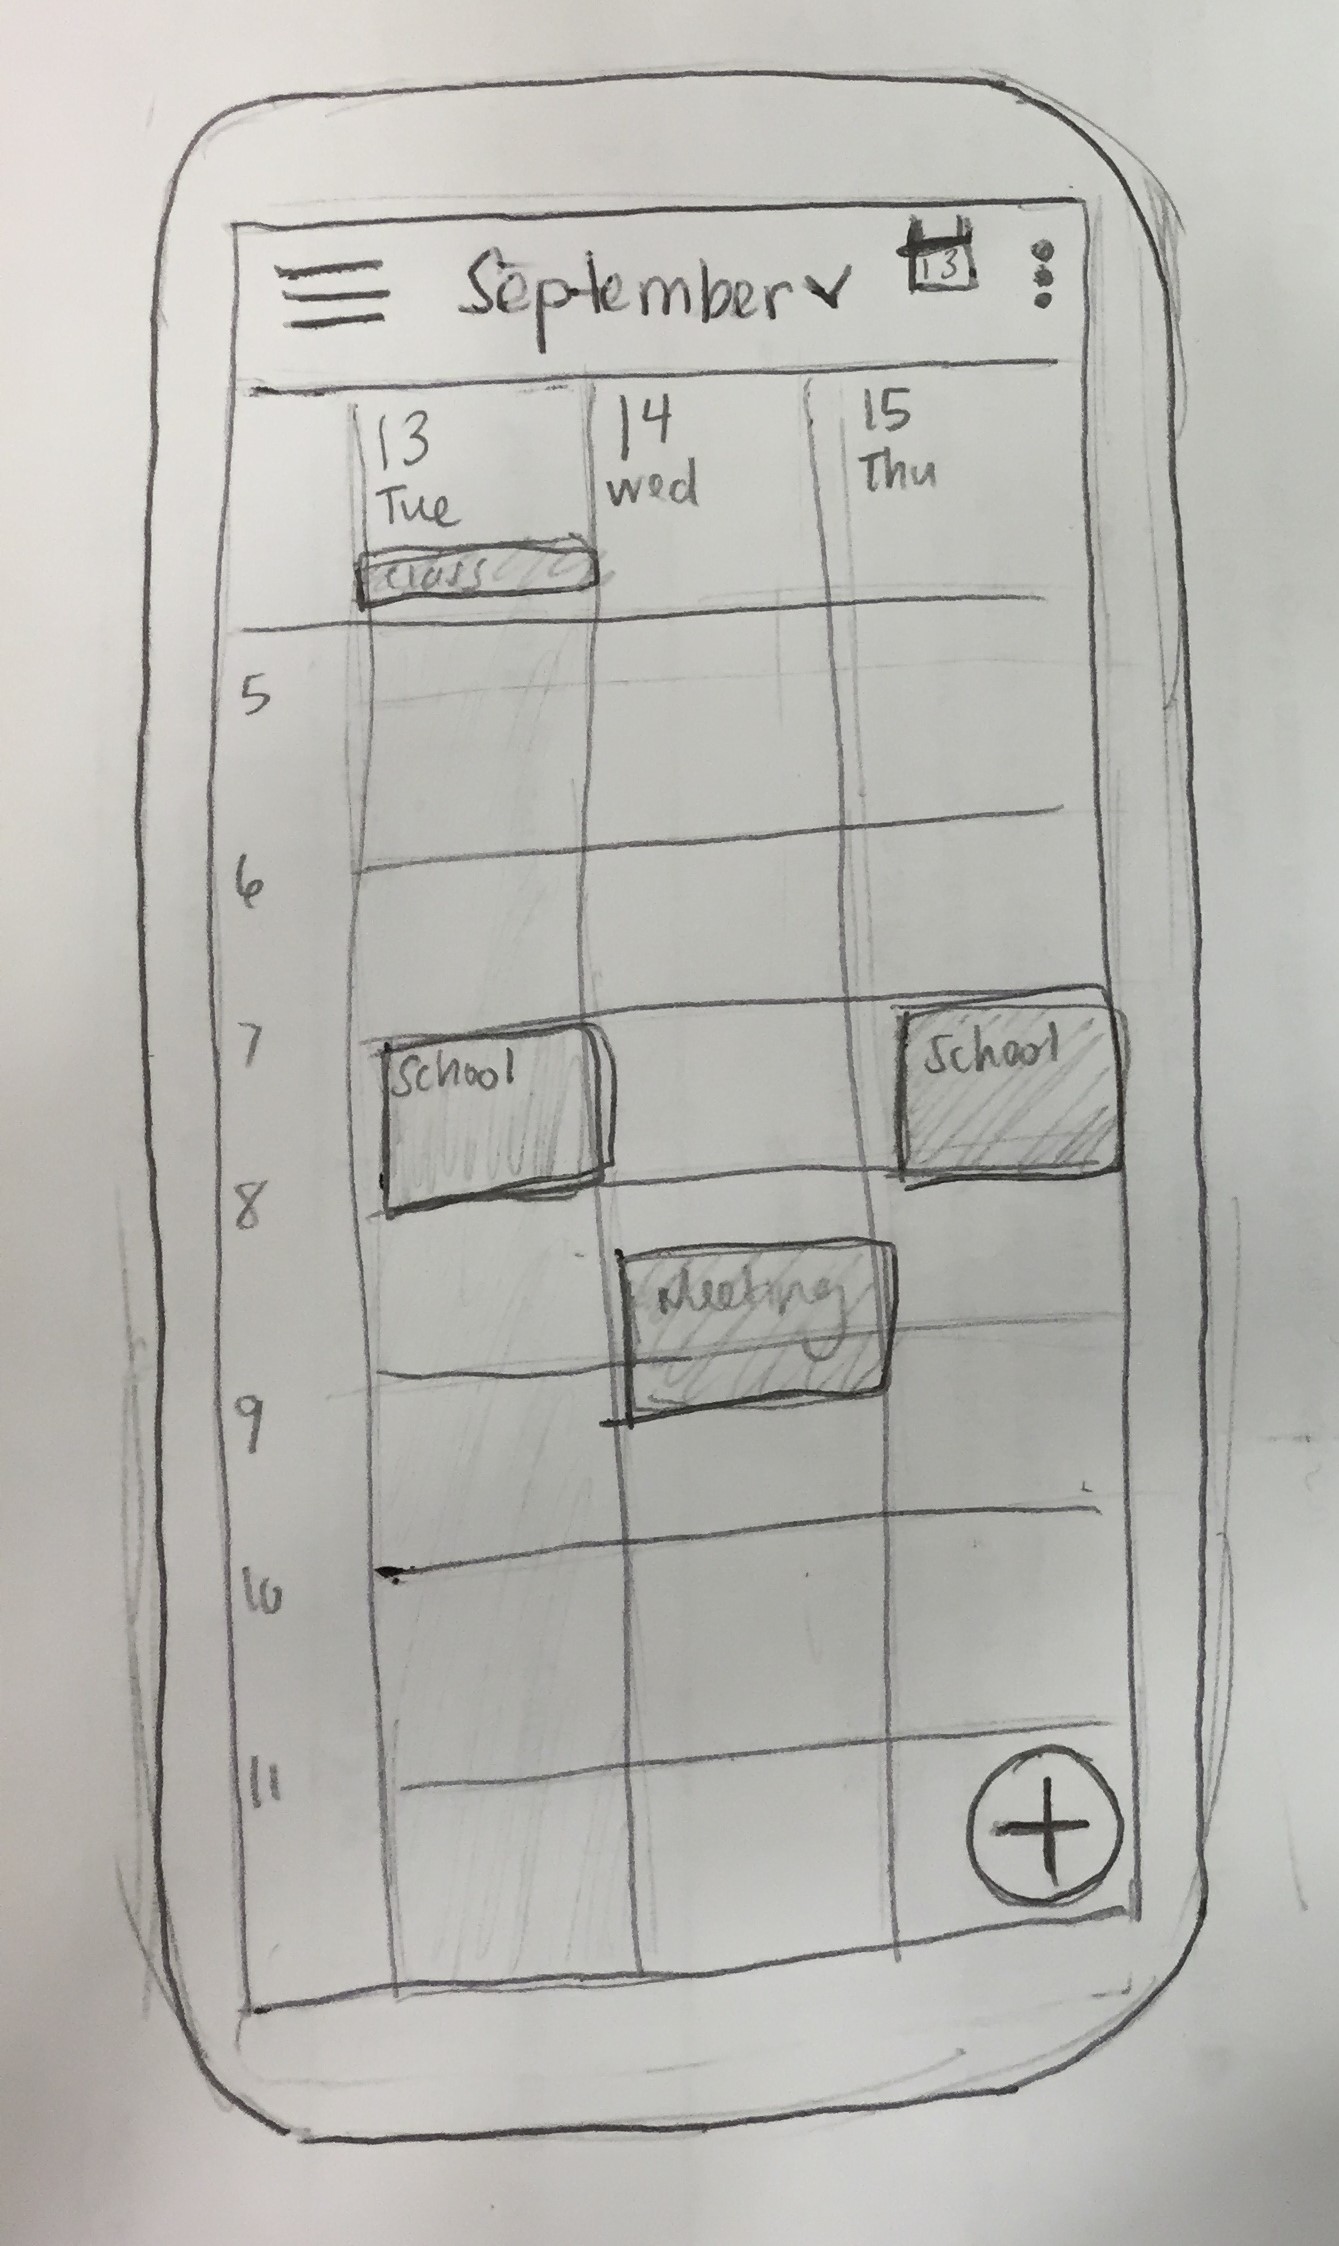 September
13
13
Tue
14
wed
15
Thu
class
5
6
7
School
School
8
Meeting
9
10
11